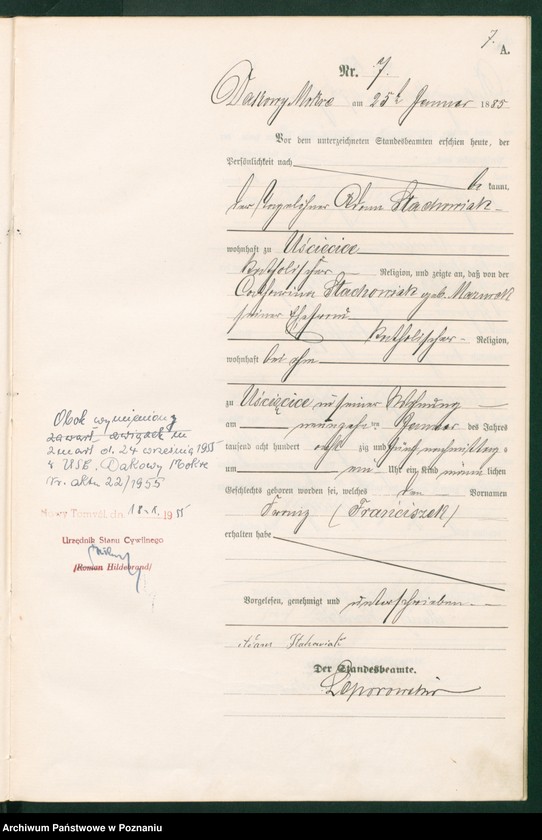 7.
A.
Nr. 7.
Dakowy Mokre am 25ten Januar 1885
Vor dem unterzeichneten Standesbeamten erschien heute, der
Persönlichkeit nach
be kannt,
der Tagelöhner Adam Stachowiak
wohnhaft zu Uścięcice
katholischer Religion, und zeigte an, daß von der
Catharina Stachowiak geb.
seiner Ehefrau
katholischer Religion,
wohnhaft bei ihm
zu Uścięcice in seiner Wohnung
am neunzehnten Januar des Jahres
tausend acht hundert acht zig und fünf nachmittags
um Uhr ein Kind männ lichen
Geschlechts geboren worden sei, welches den Vornamen
Franz (Franciszek)
erhalten habe
Vorgelesen, genehmigt und unterschrieben
Adam Stachowiak
Der Standesbeamte.
Obok wymieniony
zawarł związek m
zmarł d. 24 września 1955
w USC. Dakowy Mokre
Nr. aktu 22/1955
Nowy Tomyśl dn 18.X.1955
Urzędnik Stanu Cywilnego
/Roman Hildebrand/
Archiwum Państwowe w Poznaniu